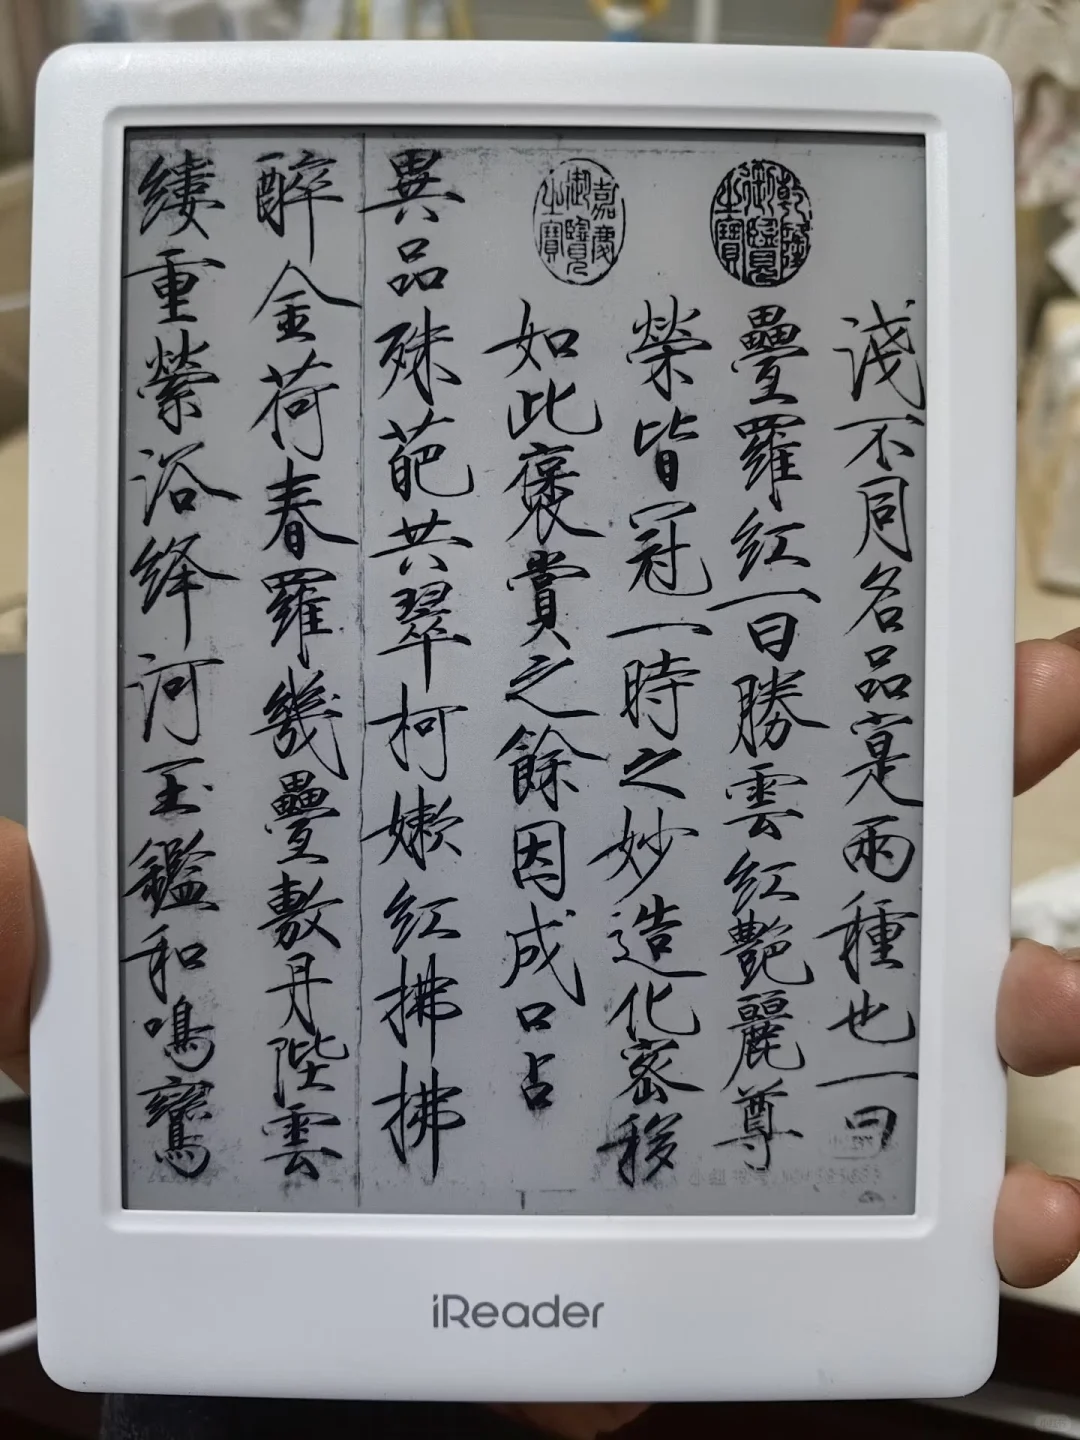 淺不同名品寔兩種也一曰
乾隆御覽之寶
疊羅紅一曰勝雲紅艷麗尊
榮皆冠一時之妙造化密移
嘉慶御覽之寶
如此褒賞之餘因成口占
異品殊葩共翠柯嫩紅拂拂
醉金荷春羅幾疊敷丹陛雲
縷重縈浴絳河玉鑑和鳴鸞
iReader